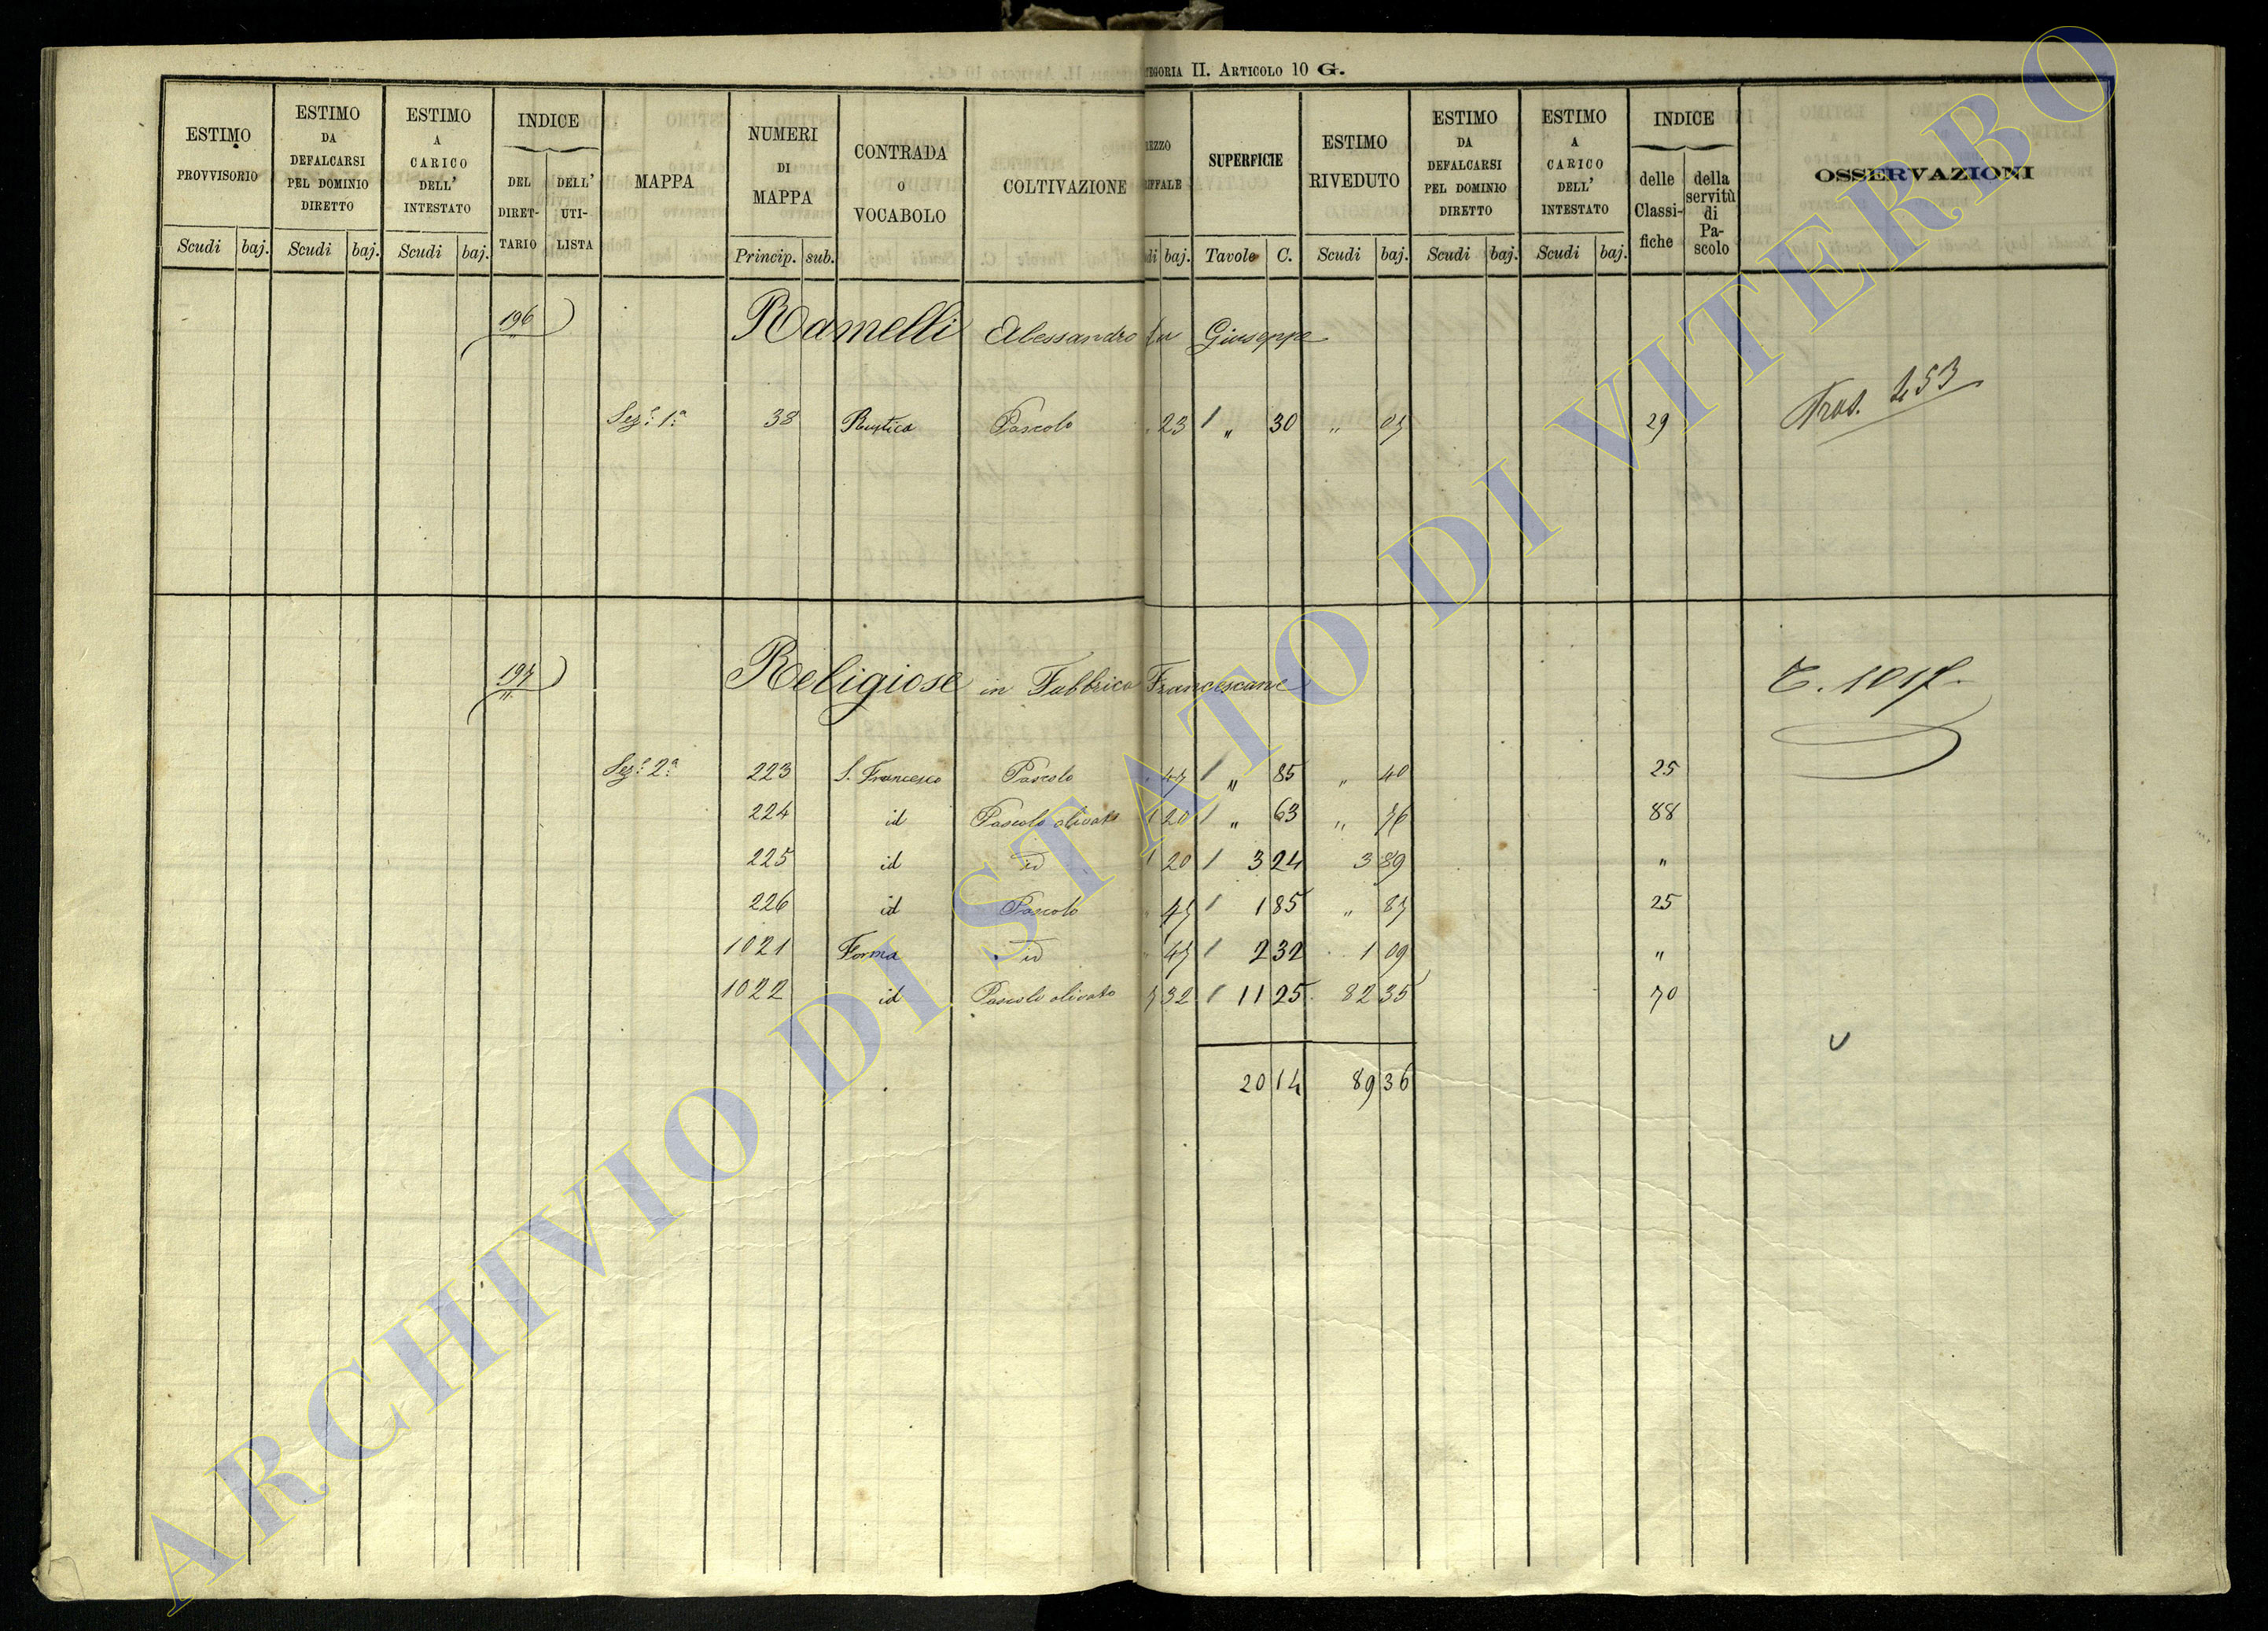 TEGORIA II. ARTICOLO 10 G.
ESTIMO PROVVISORIO Scudi baj.
ESTIMO DA DEFALCARSI PEL DOMINIO DIRETTO Scudi baj.
ESTIMO A CARICO DELL' INTESTATO Scudi baj.
INDICE DEL DIRETTARIO DELL' UTILISTA
MAPPA
NUMERI DI MAPPA Princip. sub.
CONTRADA O VOCABOLO
COLTIVAZIONE
EZZO IFFALE di baj.
SUPERFICIE Tavole C.
ESTIMO RIVEDUTO Scudi baj.
ESTIMO DA DEFALCARSI PEL DOMINIO DIRETTO Scudi baj.
ESTIMO A CARICO DELL' INTESTATO Scudi baj.
INDICE delle Classifiche della servitù di Pascolo
OSSERVAZIONI
196 Ramelli Alessandro fu Giuseppe
Sez.e 1.a 38 Rustica Pascolo " 23 / " 30 " 07 29
Tras. 253
197 Religiose in Fabbrica Francescane T. 1017
Sez.e 2.a 223 S. Francesco Pascolo " 47 / " 85 " 40 25
224 id Pascolo olivato 1 20 / " 63 " 76 88
225 id id 1 20 / 3 24 3 89 "
226 id Pascolo " 47 / 1 85 " 87 25
1021 Forma id " 47 / 2 32 1 09 "
1022 id Pascolo olivato 7 32 / 11 25 82 35 70
20 14 89 36
ARCHIVIO DI STATO DI VITERBO